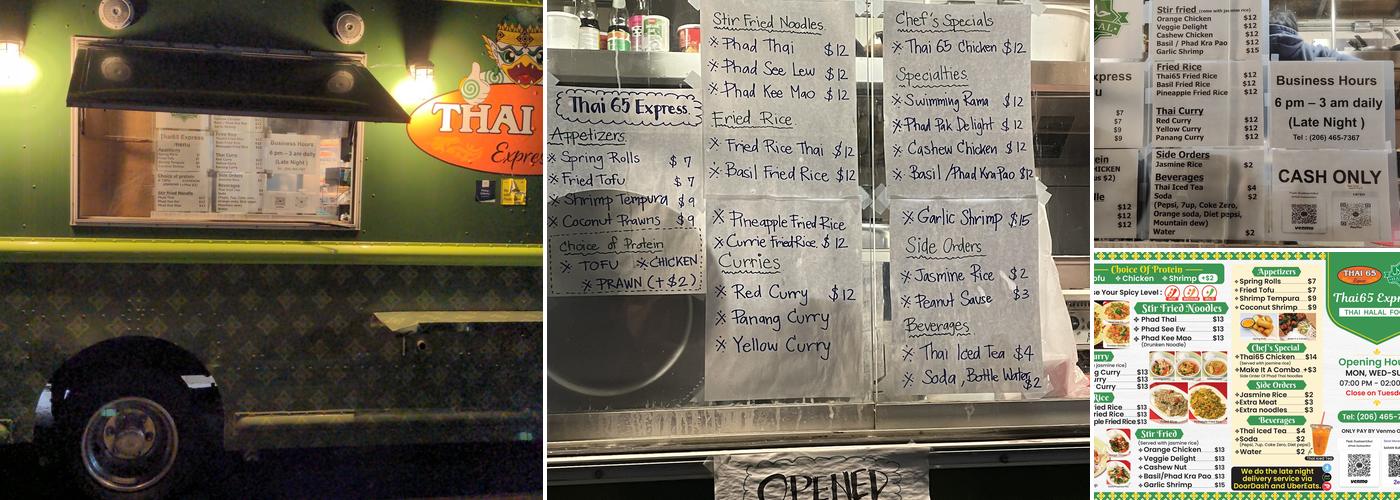 THAI
Express
Thai65 Express
menu
Business Hours
6 pm – 3 am daily
(Late Night )
Thai 65 Express
Appetizers
Spring Rolls $ 7
Fried Tofu $ 7
Shrimp Tempura $ 9
Coconut Prawns $ 9
Choice of Protein
TOFU CHICKEN
PRAWN (+ $2)
Stir Fried Noodles
Phad Thai $12
Phad See Lew $12
Phad Kee Mao $12
Fried Rice
Fried Rice Thai $12
Basil Fried Rice $12
Pineapple Fried Rice
Currie Fried Rice $12
Curries
Red Curry $12
Panang Curry
Yellow Curry
Chef's Specials
Thai 65 Chicken $12
Specialties
Swimming Rama $12
Phad Pak Delight $12
Cashew Chicken $12
Basil /Phad Kra Pao $12
Garlic Shrimp $15
Side Orders
Jasmine Rice $2
Peanut Sause $3
Beverages
Thai Iced Tea $4
Soda , Bottle Water $2
OPENED
Stir fried (come with jasmine rice)
Orange Chicken $12
Veggie Delight $12
Cashew Chicken $12
Basil / Phad Kra Pao $12
Garlic Shrimp $15
Fried Rice
Thai65 Fried Rice $12
Basil Fried Rice $12
Pineapple Fried Rice $12
Thai Curry
Red Curry $12
Yellow Curry $12
Panang Curry $12
Side Orders
Jasmine Rice $2
Beverages
Thai Iced Tea $4
Soda $2
(Pepsi, 7up, Coke Zero,
Orange soda, Diet pepsi,
Mountain dew)
Water $2
$7
$7
$9
$9
$12
$12
$12
Business Hours
6 pm – 3 am daily
(Late Night )
Tel : (206) 465-7367
CASH ONLY
venmo
Choice Of Protein
Chicken Shrimp +$2
Spicy Level :
Stir Fried Noodles
Phad Thai $13
Phad See Ew $13
Phad Kee Mao $13
(Drunken Noodle)
Curry $13
Curry $13
Curry $13
Fried Rice $13
Fried Rice $13
Fried Rice $13
Stir Fried
(Served with jasmine rice)
Orange Chicken $13
Veggie Delight $13
Cashew Nut $13
Basil/Phad Kra Pao $13
Garlic Shrimp $15
Appetizers
Spring Rolls $7
Fried Tofu $7
Shrimp Tempura $9
Coconut Shrimp $9
Chef's Special
Thai65 Chicken $14
(Served with jasmine rice)
Make It A Combo +$3
Side Order Of Phad Thai Noodles
Side Orders
Jasmine Rice $2
Extra Meat $3
Extra noodles $3
Beverages
Thai Iced Tea $4
Soda $2
(Pepsi, 7up, Coke Zero, Diet pepsi)
Water $2
Thai Iced Tea
We do the late night
delivery service via
DoorDash and UberEats.
THAI 65
Express
Thai65
THAI HALAL
Opening
MON, WED-
07:00 PM - 02:
Close on
Tel: (206) 465-
ONLY PAY BY Venmo
venmo